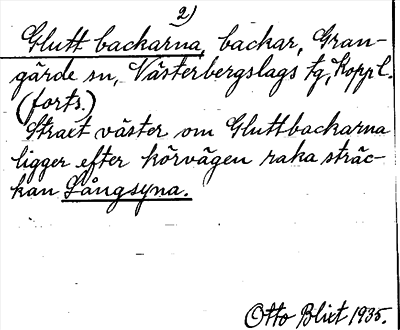 2)
Glutt backarna, backar, Gran-
gärde sn, Västerbergslags tg, Koppl.
(forts.)
Straxt väster om Gluttbackarna
ligger efter körvägen raka sträc-
kan Långsyna.
Otto Blixt 1935.